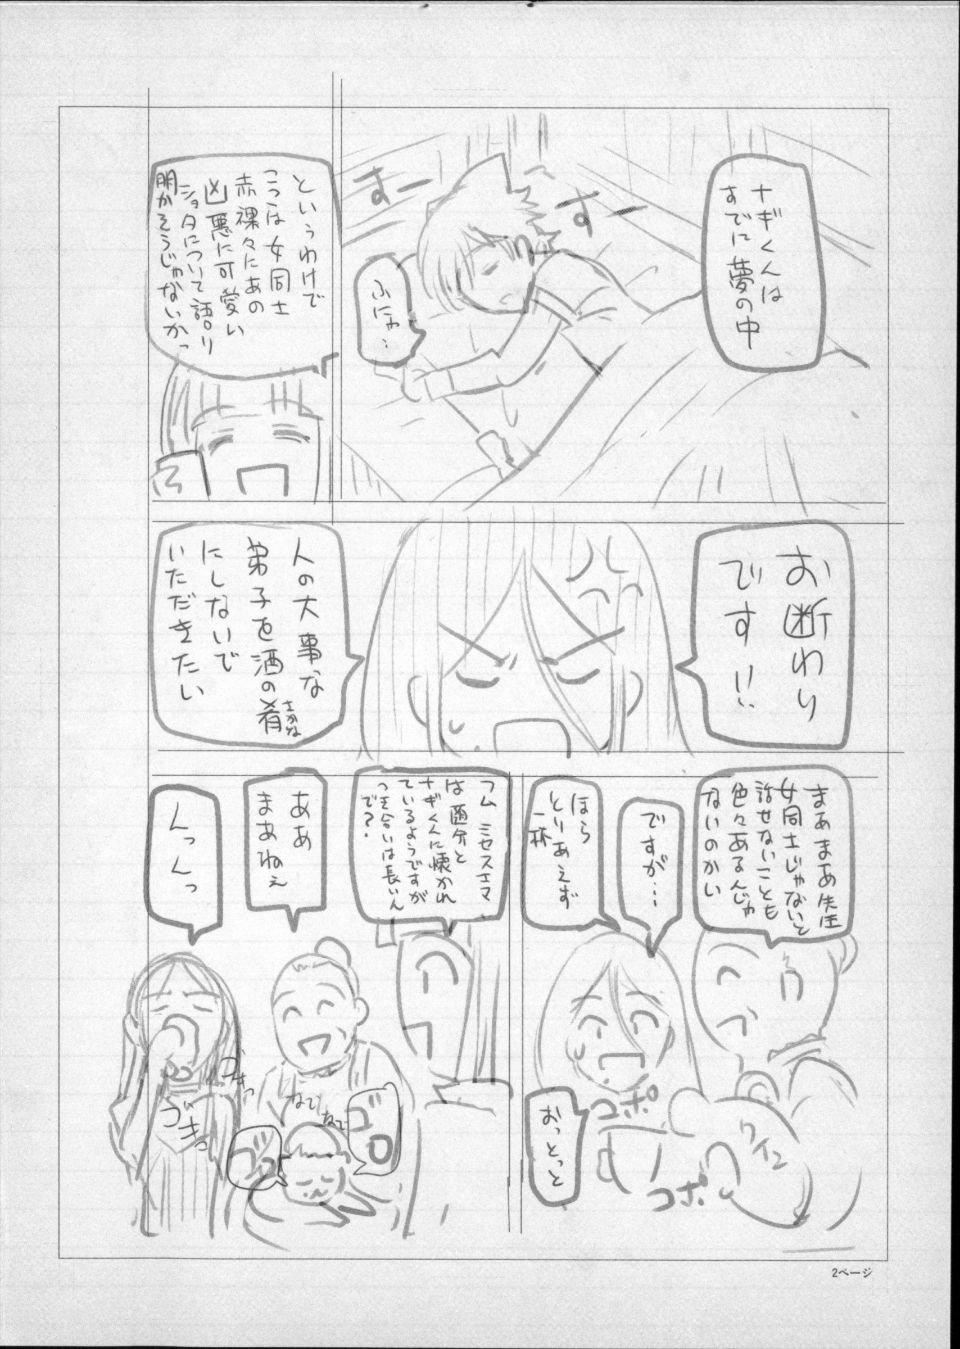 ナギくんは
すでに夢の中
すー
すー
ふにゃ…
というわけで
ここは女同士
赤裸々にあの
凶悪に可愛い
ショタについて語り
明かそうじゃないかっ
お断わり
です!!
人の大事な
弟子を酒の肴
さかな
にしないで
いただきたい
まぁまあ先生
女同士じゃないと
話せないことも
色々あるんじゃ
ないのかい
ですが…
ほら
とりあえず
一杯
おっとっと
コポ
コポ
ワイン
フム ミセスエマ
は随分と
ナギくんに懐かれ
ているようですが
つき合いは長いん
で?
ああ
まあねぇ
なでなで
ゴロ
ゴロ
んっんっ
づきっ
づきっ
2ページ